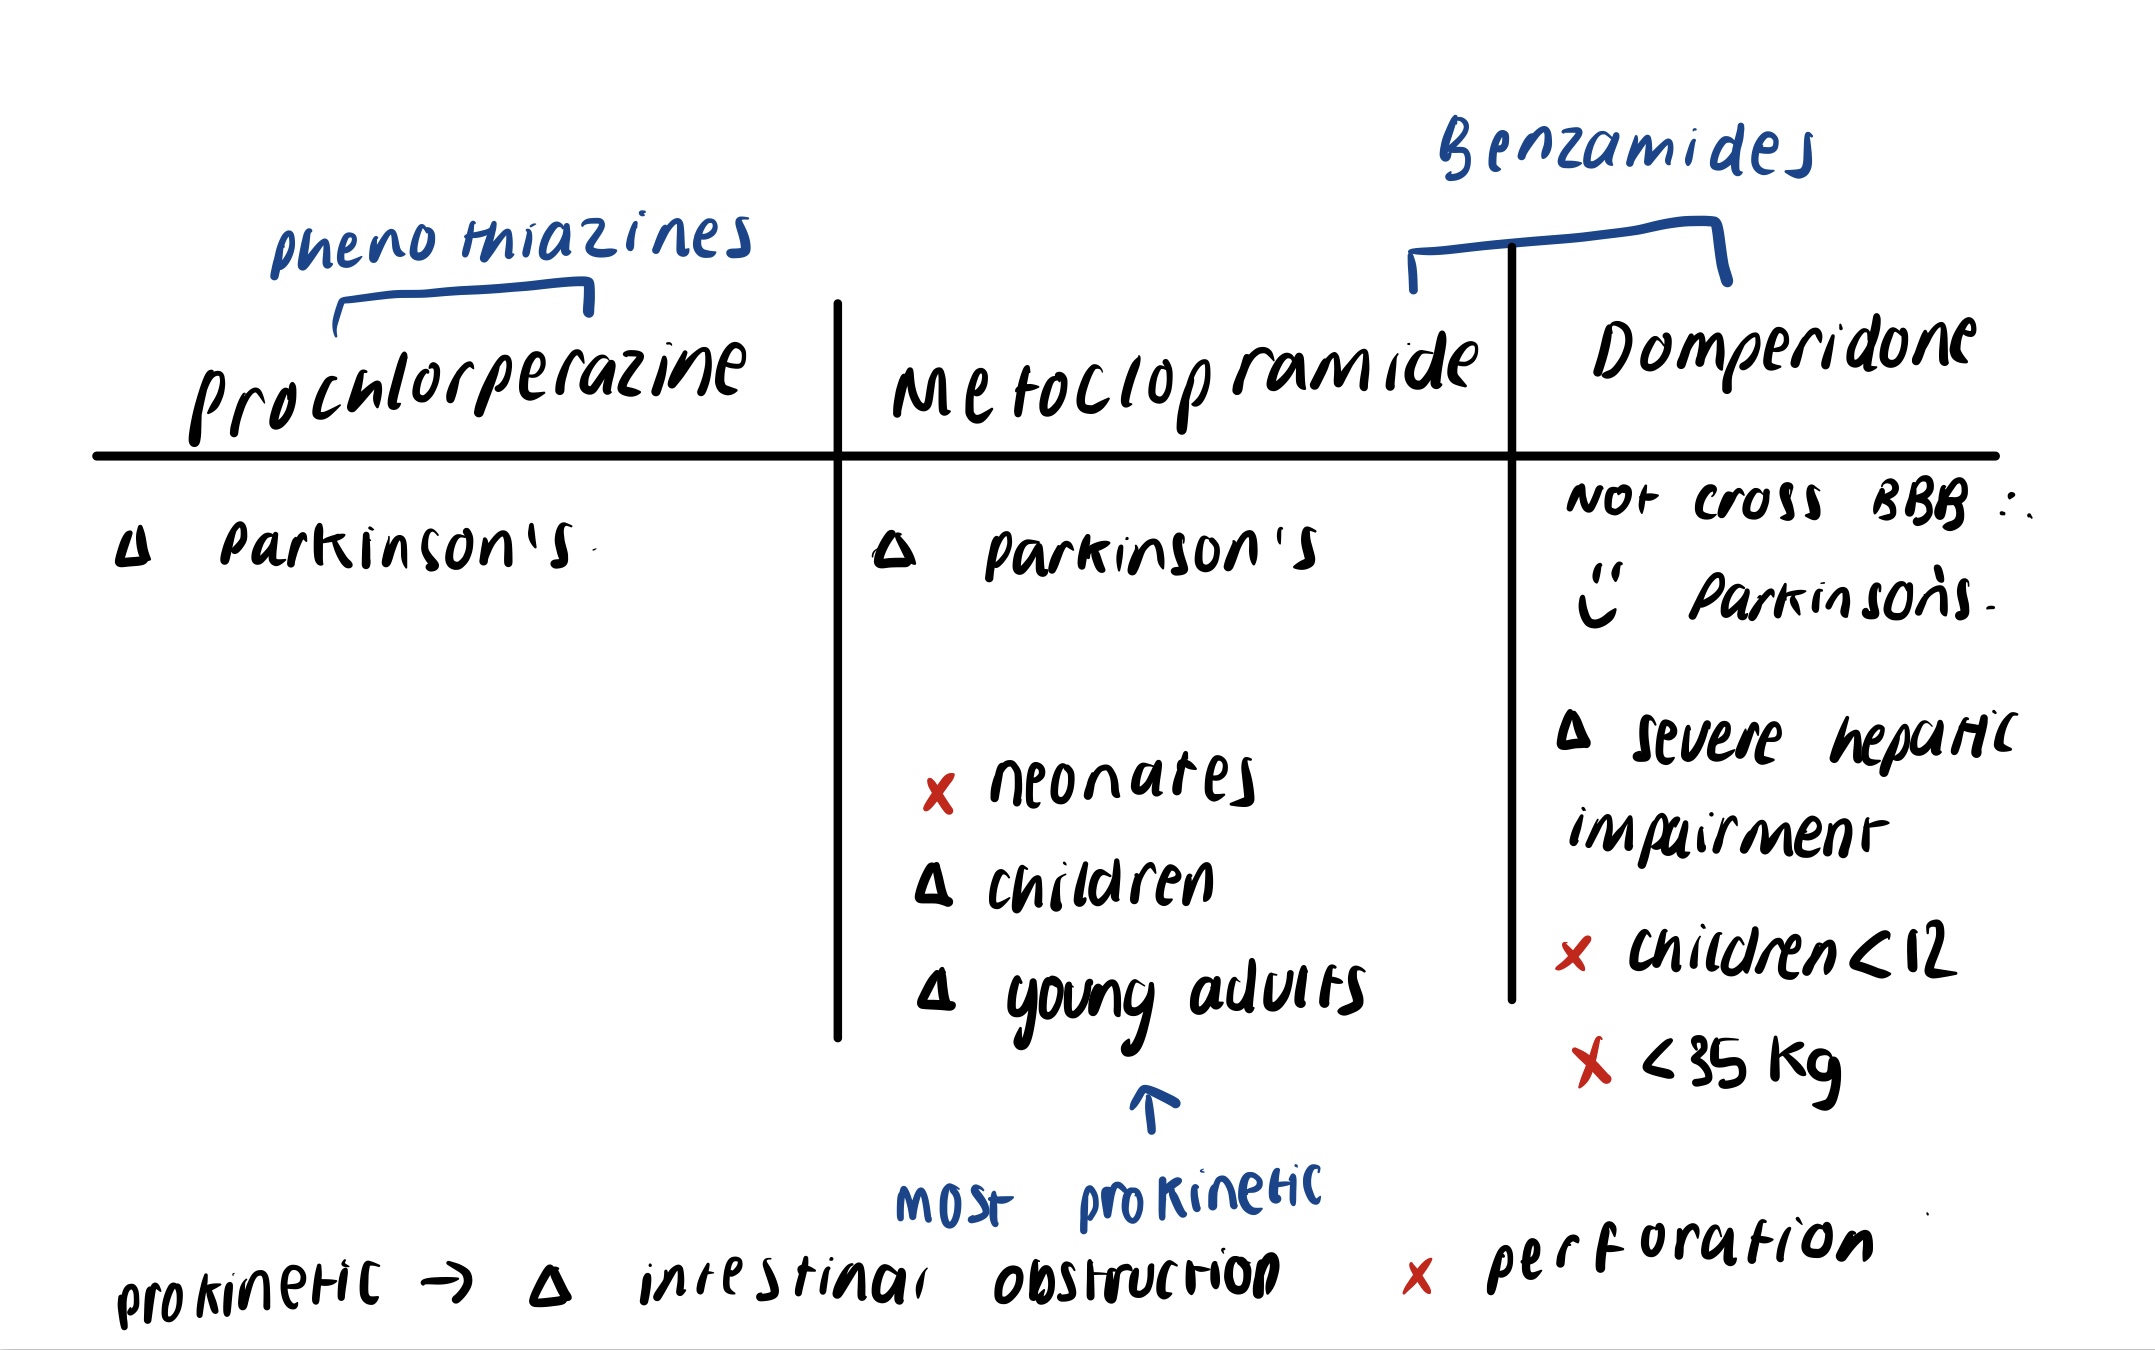 Benzamides
phenothiazines
Prochlorperazine
Metoclopramide
Domperidone
Δ Parkinson's
Δ Parkinson's
✗ neonates
Δ children
Δ young adults
↑
most prokinetic
Not cross BBB ∴
Parkinson's.
Δ severe hepatic
impairment
✗ children < 12
✗ < 35 kg
prokinetic → Δ intestinal obstruction ✗ perforation